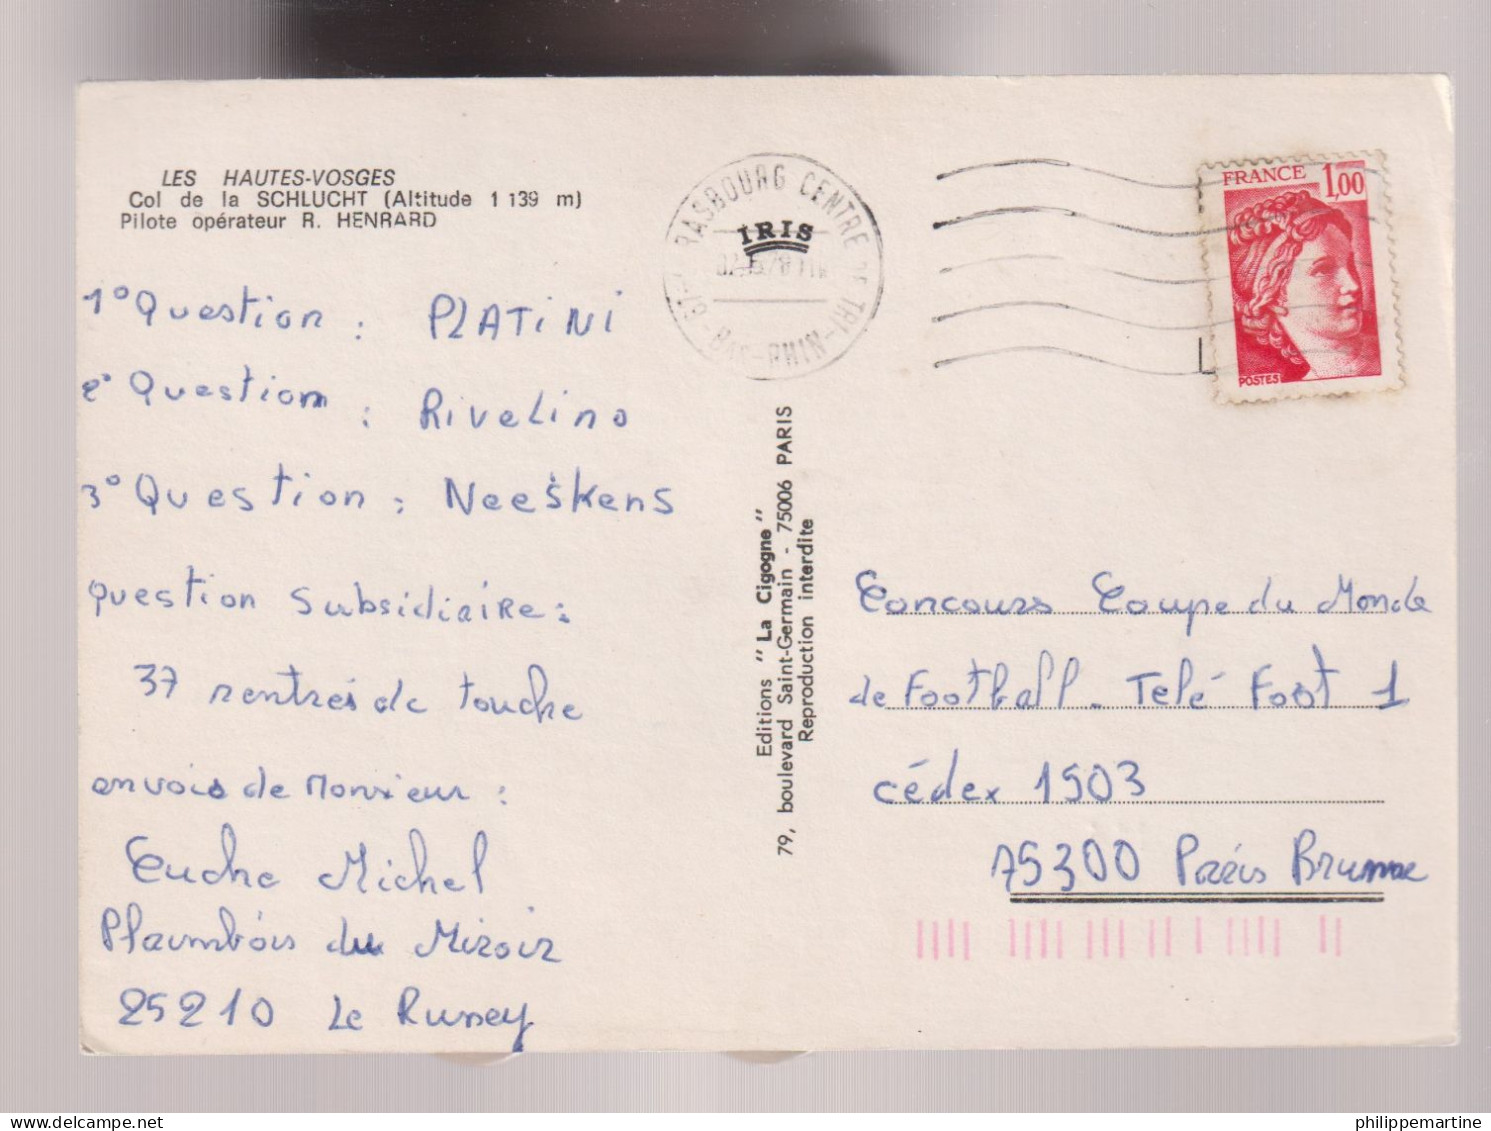 LES HAUTES-VOSGES
Col de la SCHLUCHT (Altitude 1 139 m)
Pilote opérateur R. HENRARD
1° Question : PLATiNi
2° Question : Rivelino
3° Question : Neeškens
question subsidiaire :
37 rentrés de touche
envois de Monsieur :
Cuche Michel
Plaimbois du Miroir
25210 Le Russey
RASBOURG CENTRE DE TRI
67 - BAS-RHIN
IRIS
FRANCE 1,00
POSTES
Editions "La Cigogne"
79, boulevard Saint-Germain - 75006 PARIS
Reproduction interdite
Concours Coupe du Monde
de Football - Telé Foot 1
cédex 1503
75300 Paris Brune
philippemartine